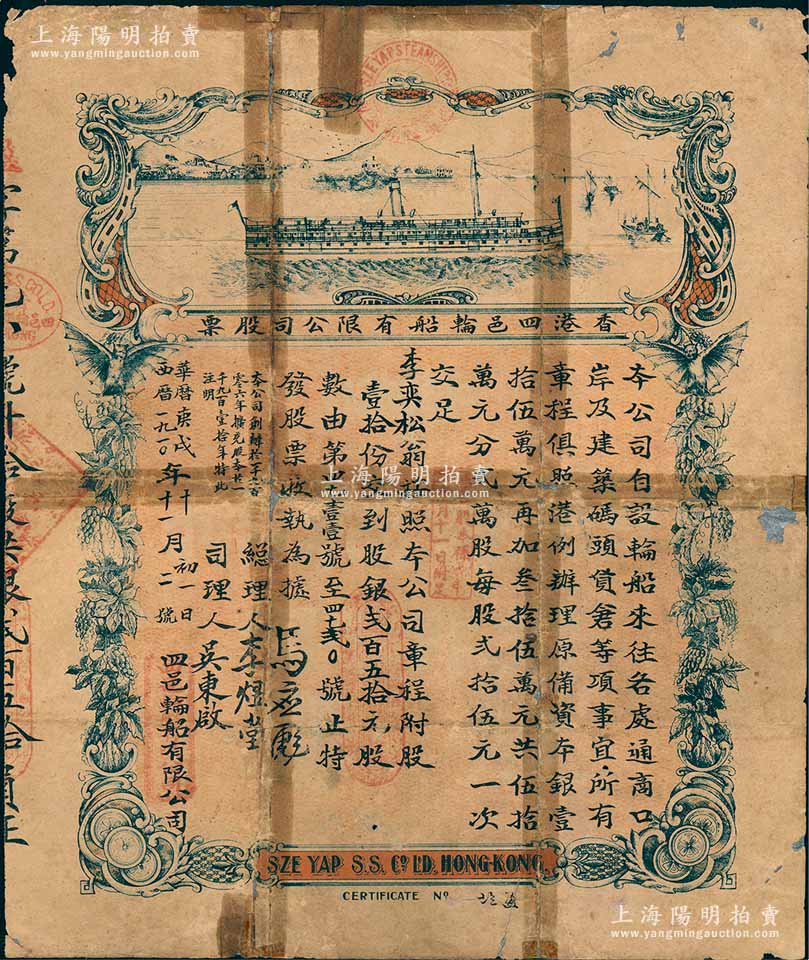 上海陽明拍賣
www.yangmingauction.com
上海陽明拍賣
www.yangmingauction.com
SZE YAP STEAMSHIP
香港四邑輪船有限公司股票
夲公司自設輪船來往各處通商口
岸及建築碼頭貨倉等項事宜所有
章程俱照港例辦理原備資夲銀壹
拾伍萬元再加叁拾伍萬元共伍拾
萬元分弍萬股每股弍拾伍元一次
交足
李奕松翁 照夲公司章程附股
壹拾份 到股銀弍百五拾元股
數由第 壹壹號至 弍〇號止特
發股票收執為據
總理人李煜堂
司理人吳東啟
夲公司創辦於一千九百
零六年擴充股夲於一
千九百壹拾年特此
注明
華曆庚戌年十月初一日
西曆一九一〇年十一月二號
四邑輪船有限公司
上海陽明拍賣
www.yangmingauction.com
SZE YAP S.S. Co LD. HONG-KONG.
CERTIFICATE No
上海陽明拍賣
www.yangmingauction.com